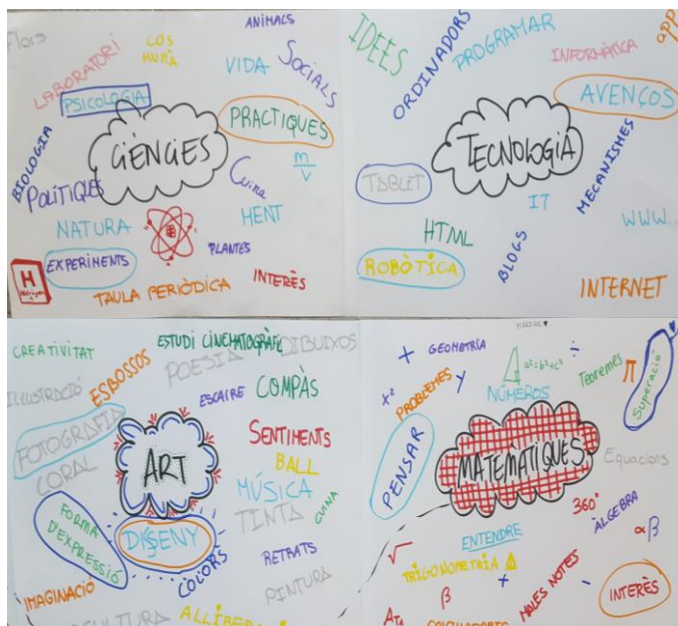 Flors
LABORATORI
COS
HUMÀ
ANIMALS
VIDA
SOCIALS
PSICOLOGIA
PRACTIQUES
CIÈNCIES
BIOLOGIA
POLÍTIQUES
m
V
Cuina
NATURA
MENT
PLANTES
EXPERIMENTS
H
TAULA PERIÒDICA
INTERÈS
IDEES
ORDINADORS
PROGRAMAR
INFORMÀTICA
APP
AVENÇOS
TECNOLOGIA
TABLET
IT
MECANISMES
HTML
BLOGS
WWW...
ROBÒTICA
INTERNET
CREATIVITAT
ESTUDI CINEMATOGRÀFIC
DIBUIXOS
POESIA
IL·LUSTRACIÓ
ESBOSSOS
ESCAIRE
COMPÀS
FOTOGRAFIA
CORAL
ART
SENTIMENTS
BALL
MÚSICA
CUINA
TINTA
FORMA
D'EXPRESSIÓ
DISSENY
COLORS
RETRATS
IMAGINACIÓ
PINTURA
+
GEOMETRIA
÷
a²=b²+c²
Teoremes
π
Superació
x²
PROBLEMES
y
NÚMEROS
PENSAR
MATEMÀTIQUES
Equacions
360°
ÀLGEBRA
αβ
ENTENDRE
√
TRIGONOMETRIA
+
β
MALES NOTES
INTERÈS